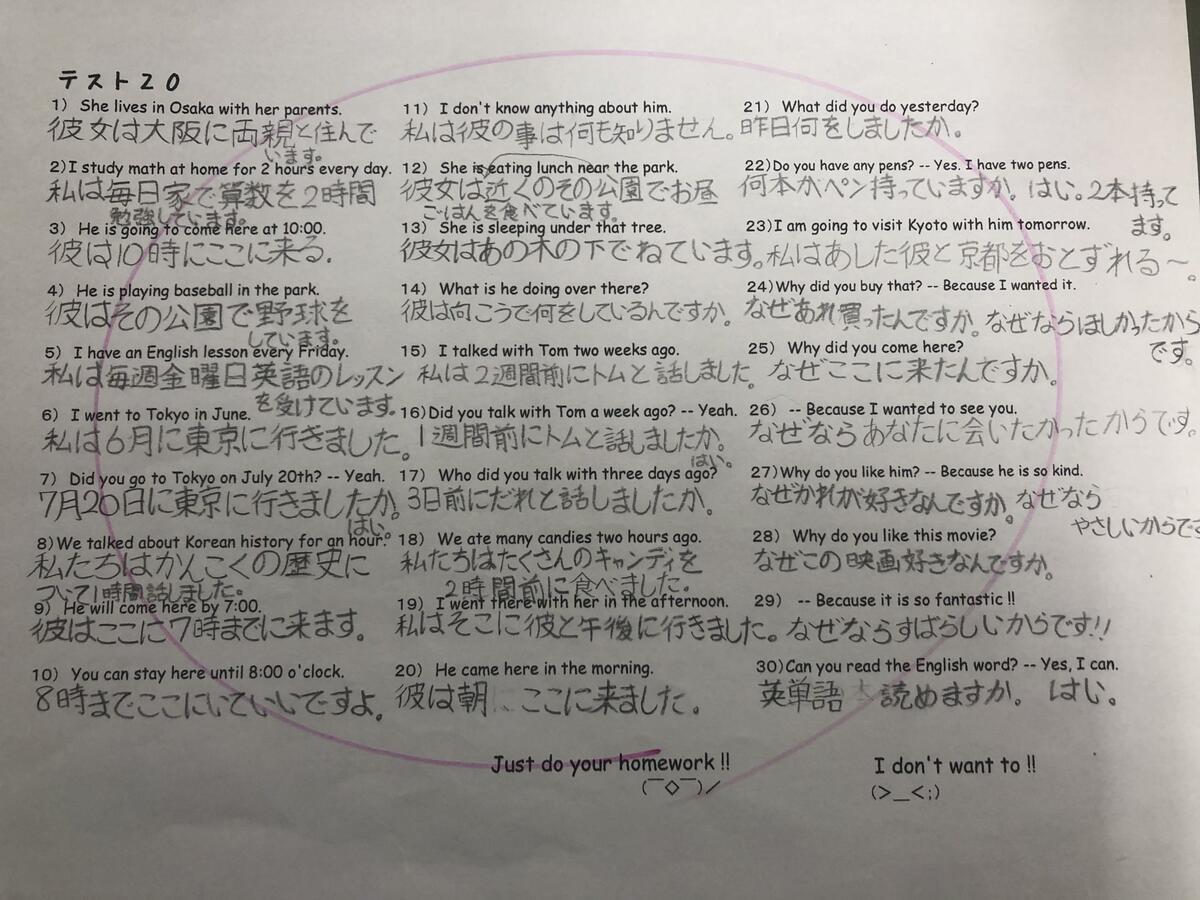 テスト２０
1） She lives in Osaka with her parents.
彼女は大阪に両親と住んで
います。
2)I study math at home for 2 hours every day.
私は毎日家で算数を２時間
勉強しています。
3） He is going to come here at 10:00.
彼は10時にここに来る.
4） He is playing baseball in the park.
彼はその公園で野球を
しています。
5） I have an English lesson every Friday.
私は毎週金曜日英語のレッスン
を受けています。
6） I went to Tokyo in June.
私は6月に東京に行きました。
7） Did you go to Tokyo on July 20th? -- Yeah.
7月20日に東京に行きましたか。
はい。
8)We talked about Korean history for an hour.
私たちはかんこくの歴史に
ついて1時間話しました。
9） He will come here by 7:00.
彼はここに7時までに来ます。
10） You can stay here until 8:00 o'clock.
8時までここにいていいですよ。
11） I don't know anything about him.
私は彼の事は何も知りません。
12） She is eating lunch near the park.
彼女は近くのその公園でお昼
ごはんを食べています。
13） She is sleeping under that tree.
彼女はあの木の下でねています。
14） What is he doing over there?
彼は向こうで何をしているんですか。
15） I talked with Tom two weeks ago.
私は2週間前にトムと話しました。
16)Did you talk with Tom a week ago? -- Yeah.
1週間前にトムと話しましたか。
はい。
17） Who did you talk with three days ago?
3日前にだれと話しましたか。
18） We ate many candies two hours ago.
私たちはたくさんのキャンディを
2時間前に食べました。
19） I went there with her in the afternoon.
私はそこに彼と午後に行きました。
20） He came here in the morning.
彼は朝 ここに来ました。
21） What did you do yesterday?
昨日何をしましたか。
22)Do you have any pens? -- Yes. I have two pens.
何本かペン持っていますか。はい。2本持って
ます。
23)I am going to visit Kyoto with him tomorrow.
私はあした彼と京都をおとずれる〜。
24)Why did you buy that? -- Because I wanted it.
なぜあれ買ったんですか。なぜならほしかったから
です。
25） Why did you come here?
なぜここに来たんですか。
26） -- Because I wanted to see you.
なぜならあなたに会いたかったからです。
27)Why do you like him? -- Because he is so kind.
なぜかれが好きなんですか。なぜなら
やさしいからです
28） Why do you like this movie?
なぜこの映画好きなんですか。
29） -- Because it is so fantastic !!
なぜならすばらしいからです!!
30)Can you read the English word? -- Yes, I can.
英単語 読めますか。 はい。
Just do your homework !!
(￣◇￣)／
I don't want to !!
(>＿<;)